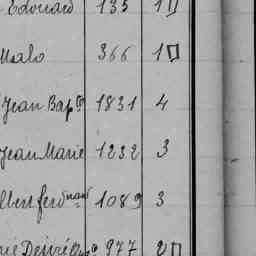 Edouard 135 1
Malo 366 1
Jean Bapte 1831 4
Jean Marie 1232 3
lbert ferdnand 1089 3
Désiré 977 2